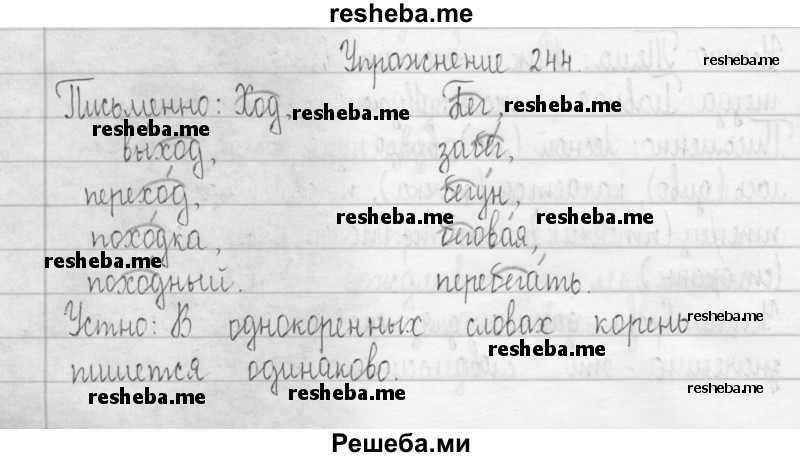 resheba.me
Упражнение 244. resheba.me
Письменно: Ход, resheba.me Бег, resheba.me
resheba.me
выход, забег,
переход, бегун,
resheba.me resheba.me
походка, беговая,
resheba.me
походный. перебегать.
Устно: В однокоренных словах корень resheba.me
resheba.me
пишется одинаково.
resheba.me resheba.me resheba.me
Решеба.ми